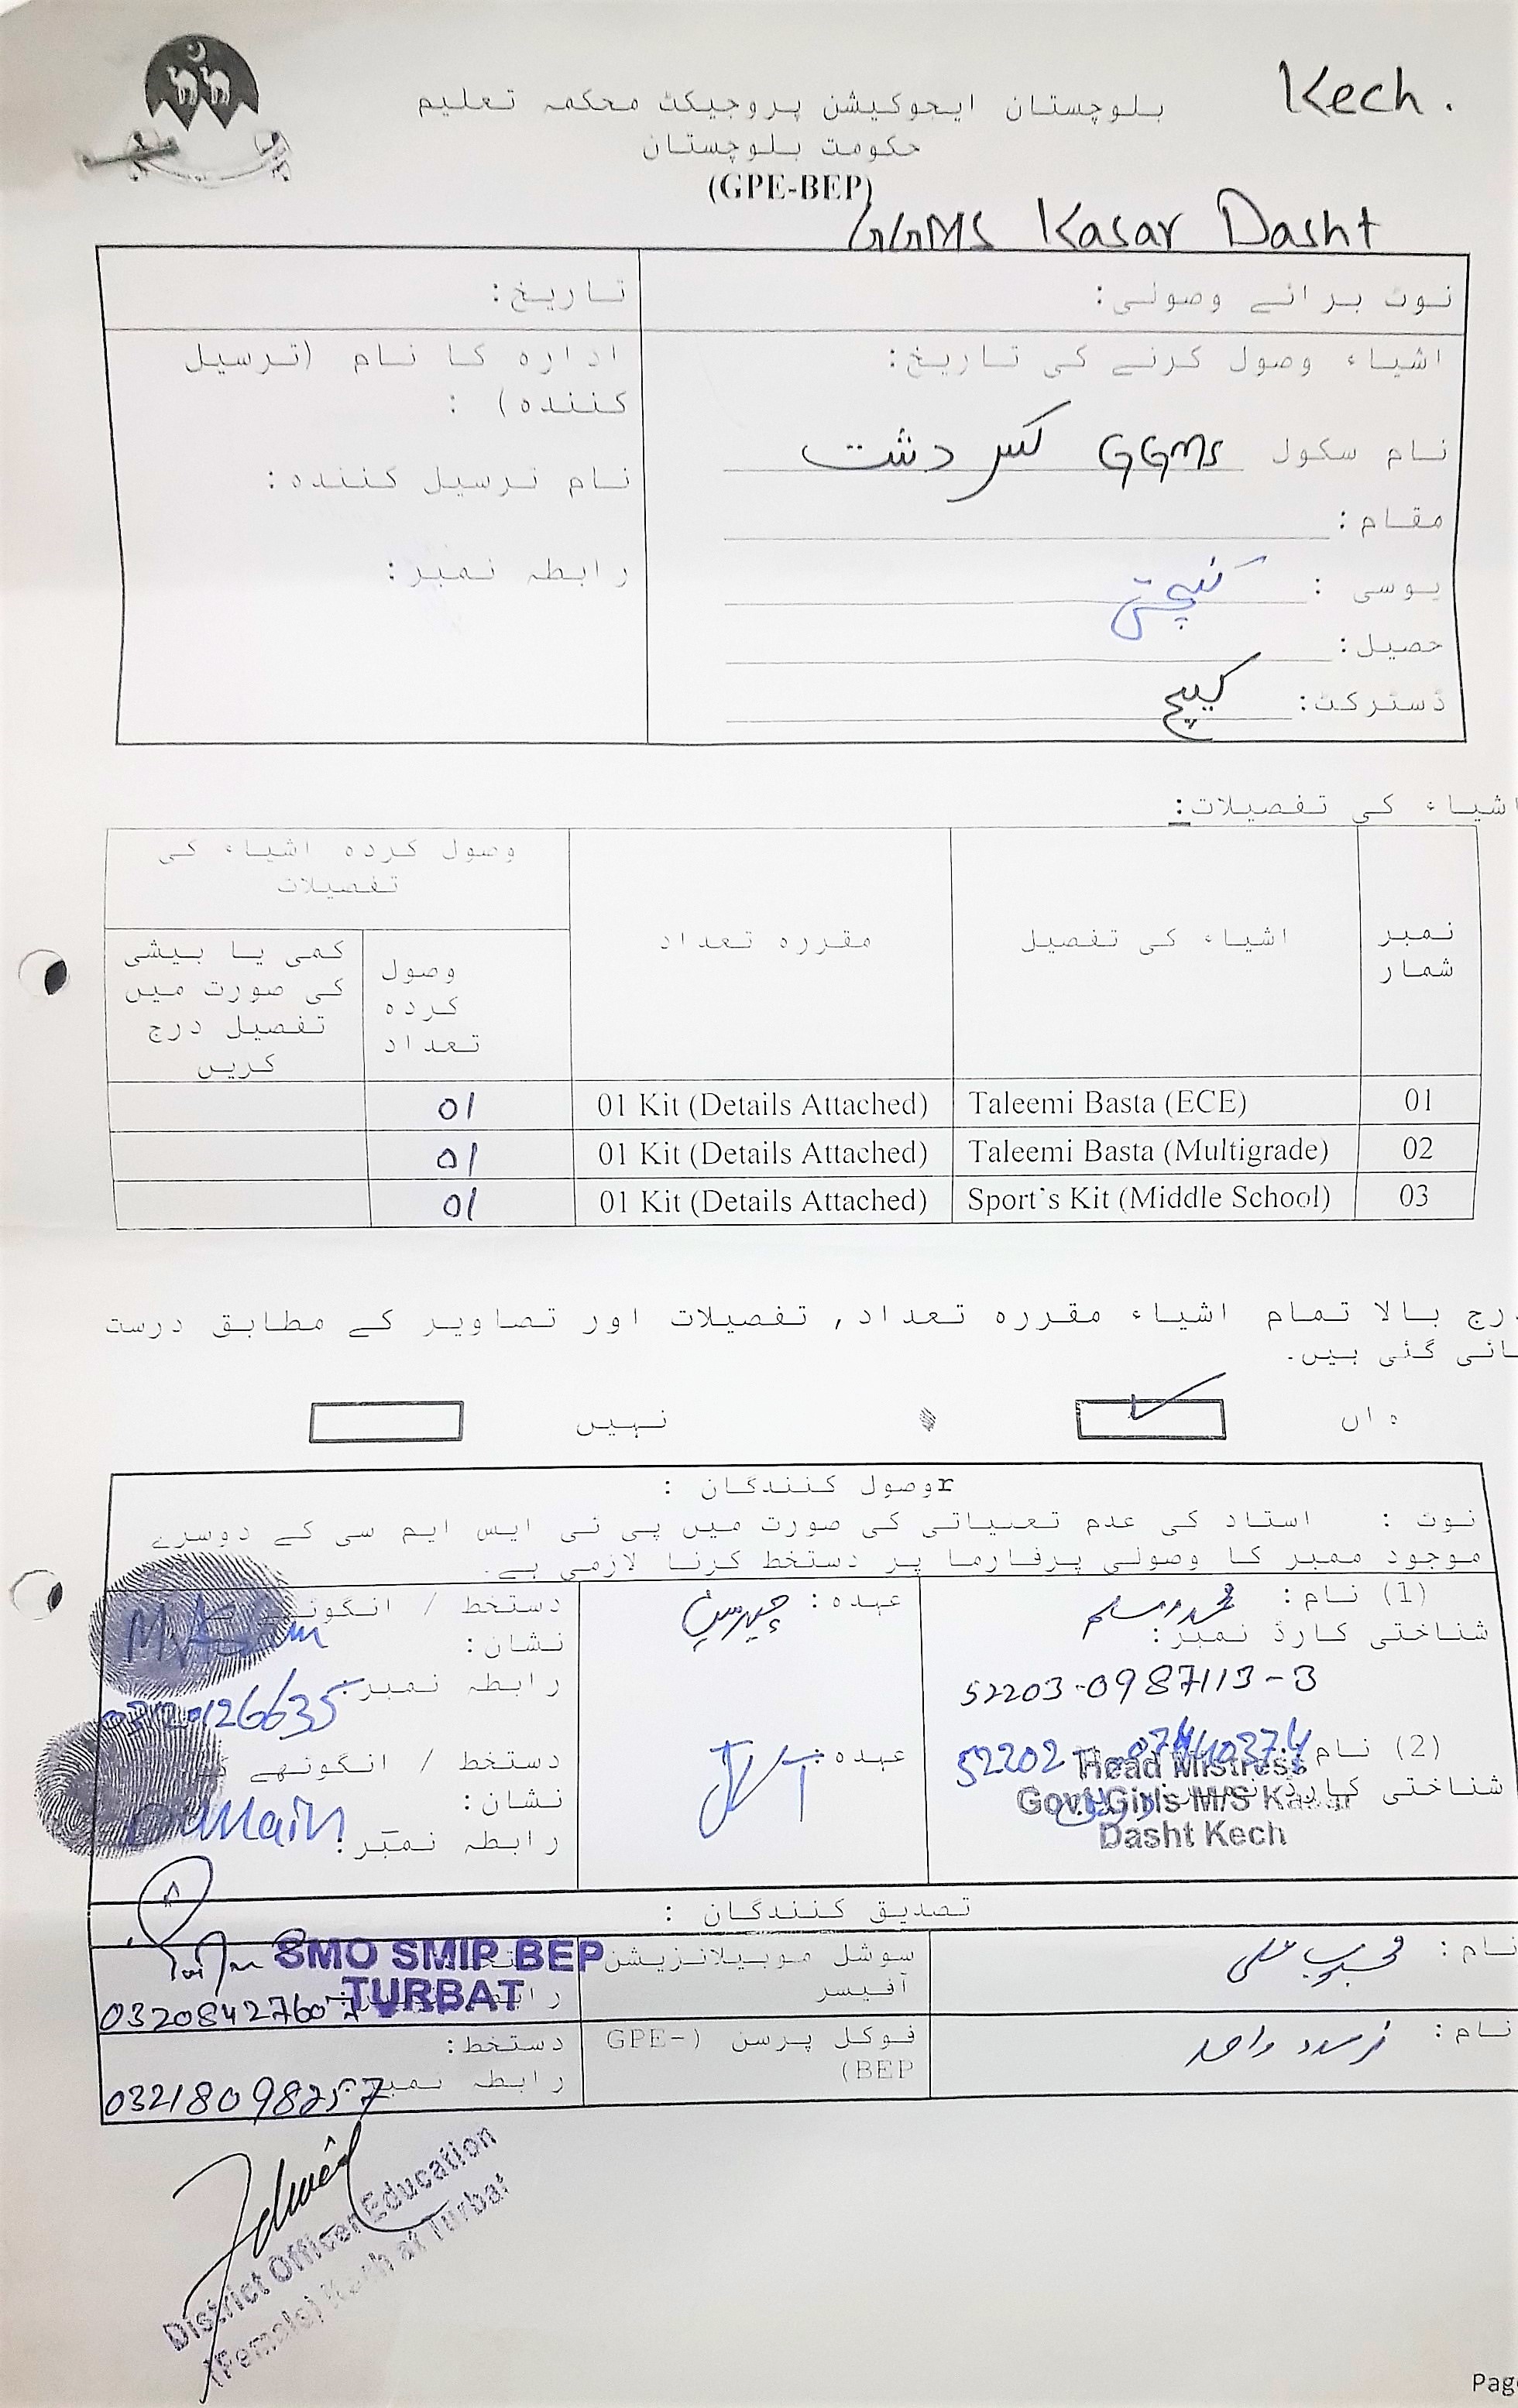 Kech.
بلوچستان ایجوکیشن پروجیکٹ محکمہ تعلیم
حکومت بلوچستان
(GPE-BEP)
GGMS Kasar Dasht
نوٹ برائے وصولی:
تاریخ:
اشیاء وصول کرنے کی تاریخ:
نام سکول GGMS کسر دشت
مقام:
یوسی :
حصیل:
ڈسٹرکٹ: کیچ
ادارہ کا نام (ترسیل
کنندہ) :
نام ترسیل کنندہ:
رابطہ نمبر:
اشیاء کی تفصیلات:
نمبر شمار
اشیاء کی تفصیل
مقررہ تعداد
وصول کردہ اشیاء کی تفصیلات
وصول کردہ تعداد
کمی یا بیشی کی صورت میں تفصیل درج کریں
01 Taleemi Basta (ECE) 01 Kit (Details Attached) 01
02 Taleemi Basta (Multigrade) 01 Kit (Details Attached) 01
03 Sport's Kit (Middle School) 01 Kit (Details Attached) 01
درج بالا تمام اشیاء مقررہ تعداد, تفصیلات اور تصاویر کے مطابق درست
پائی گئی ہیں۔
ہاں
نہیں
rوصول کنندگان :
نوٹ : استاد کی عدم تعیناتی کی صورت میں پی ٹی ایس ایم سی کے دوسرے
موجود ممبر کا وصولی پرفارما پر دستخط کرنا لازمی ہے۔
(1) نام:
شناختی کارڈ نمبر:
52203-0987113-3
عہدہ:
دستخط / انگوٹھے
نشان:
رابطہ نمبر
(2) نام
شناختی کارڈ
52202
Head Mistress
Govt Girls M/S Kasar
Dasht Kech
عہدہ:
دستخط / انگوٹھے
نشان:
رابطہ نمبر:
تصدیق کنندگان :
نام:
سوشل موبیلائزیشن
آفیسر
SMO SMIP BEP
TURBAT
03208427607
نام:
فوکل پرسن (GPE-BEP)
دستخط:
رابطہ نمبر
03218098257
District Officer Education
(Female) Kech at Turbat
Page